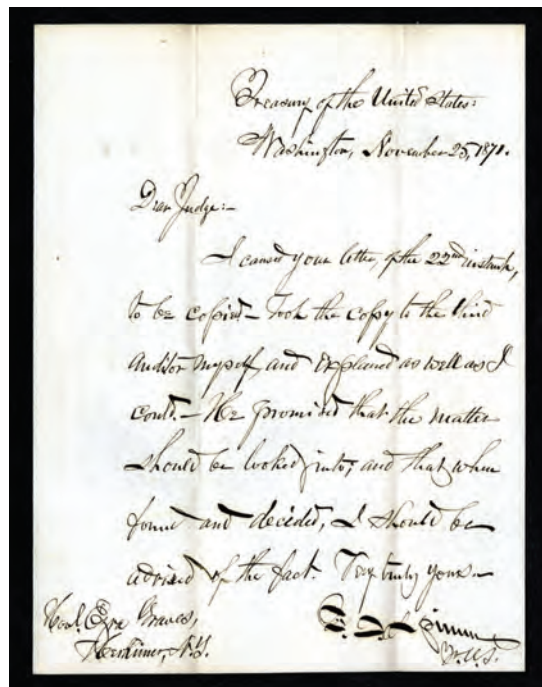 Treasury of the United States:
Washington, November 25, 1871.
Dear Judge:—
I caused your letter, of the 22nd instant,
to be copied — Took the copy to the third
Auditor myself, and explained as well as I
could. — He promised that the matter
should be looked into; and that when
found and decided, I should be
advised of the fact. Very truly yours
Honl. Ezra Graves,
Herkimer, N.Y.
T.U.S.